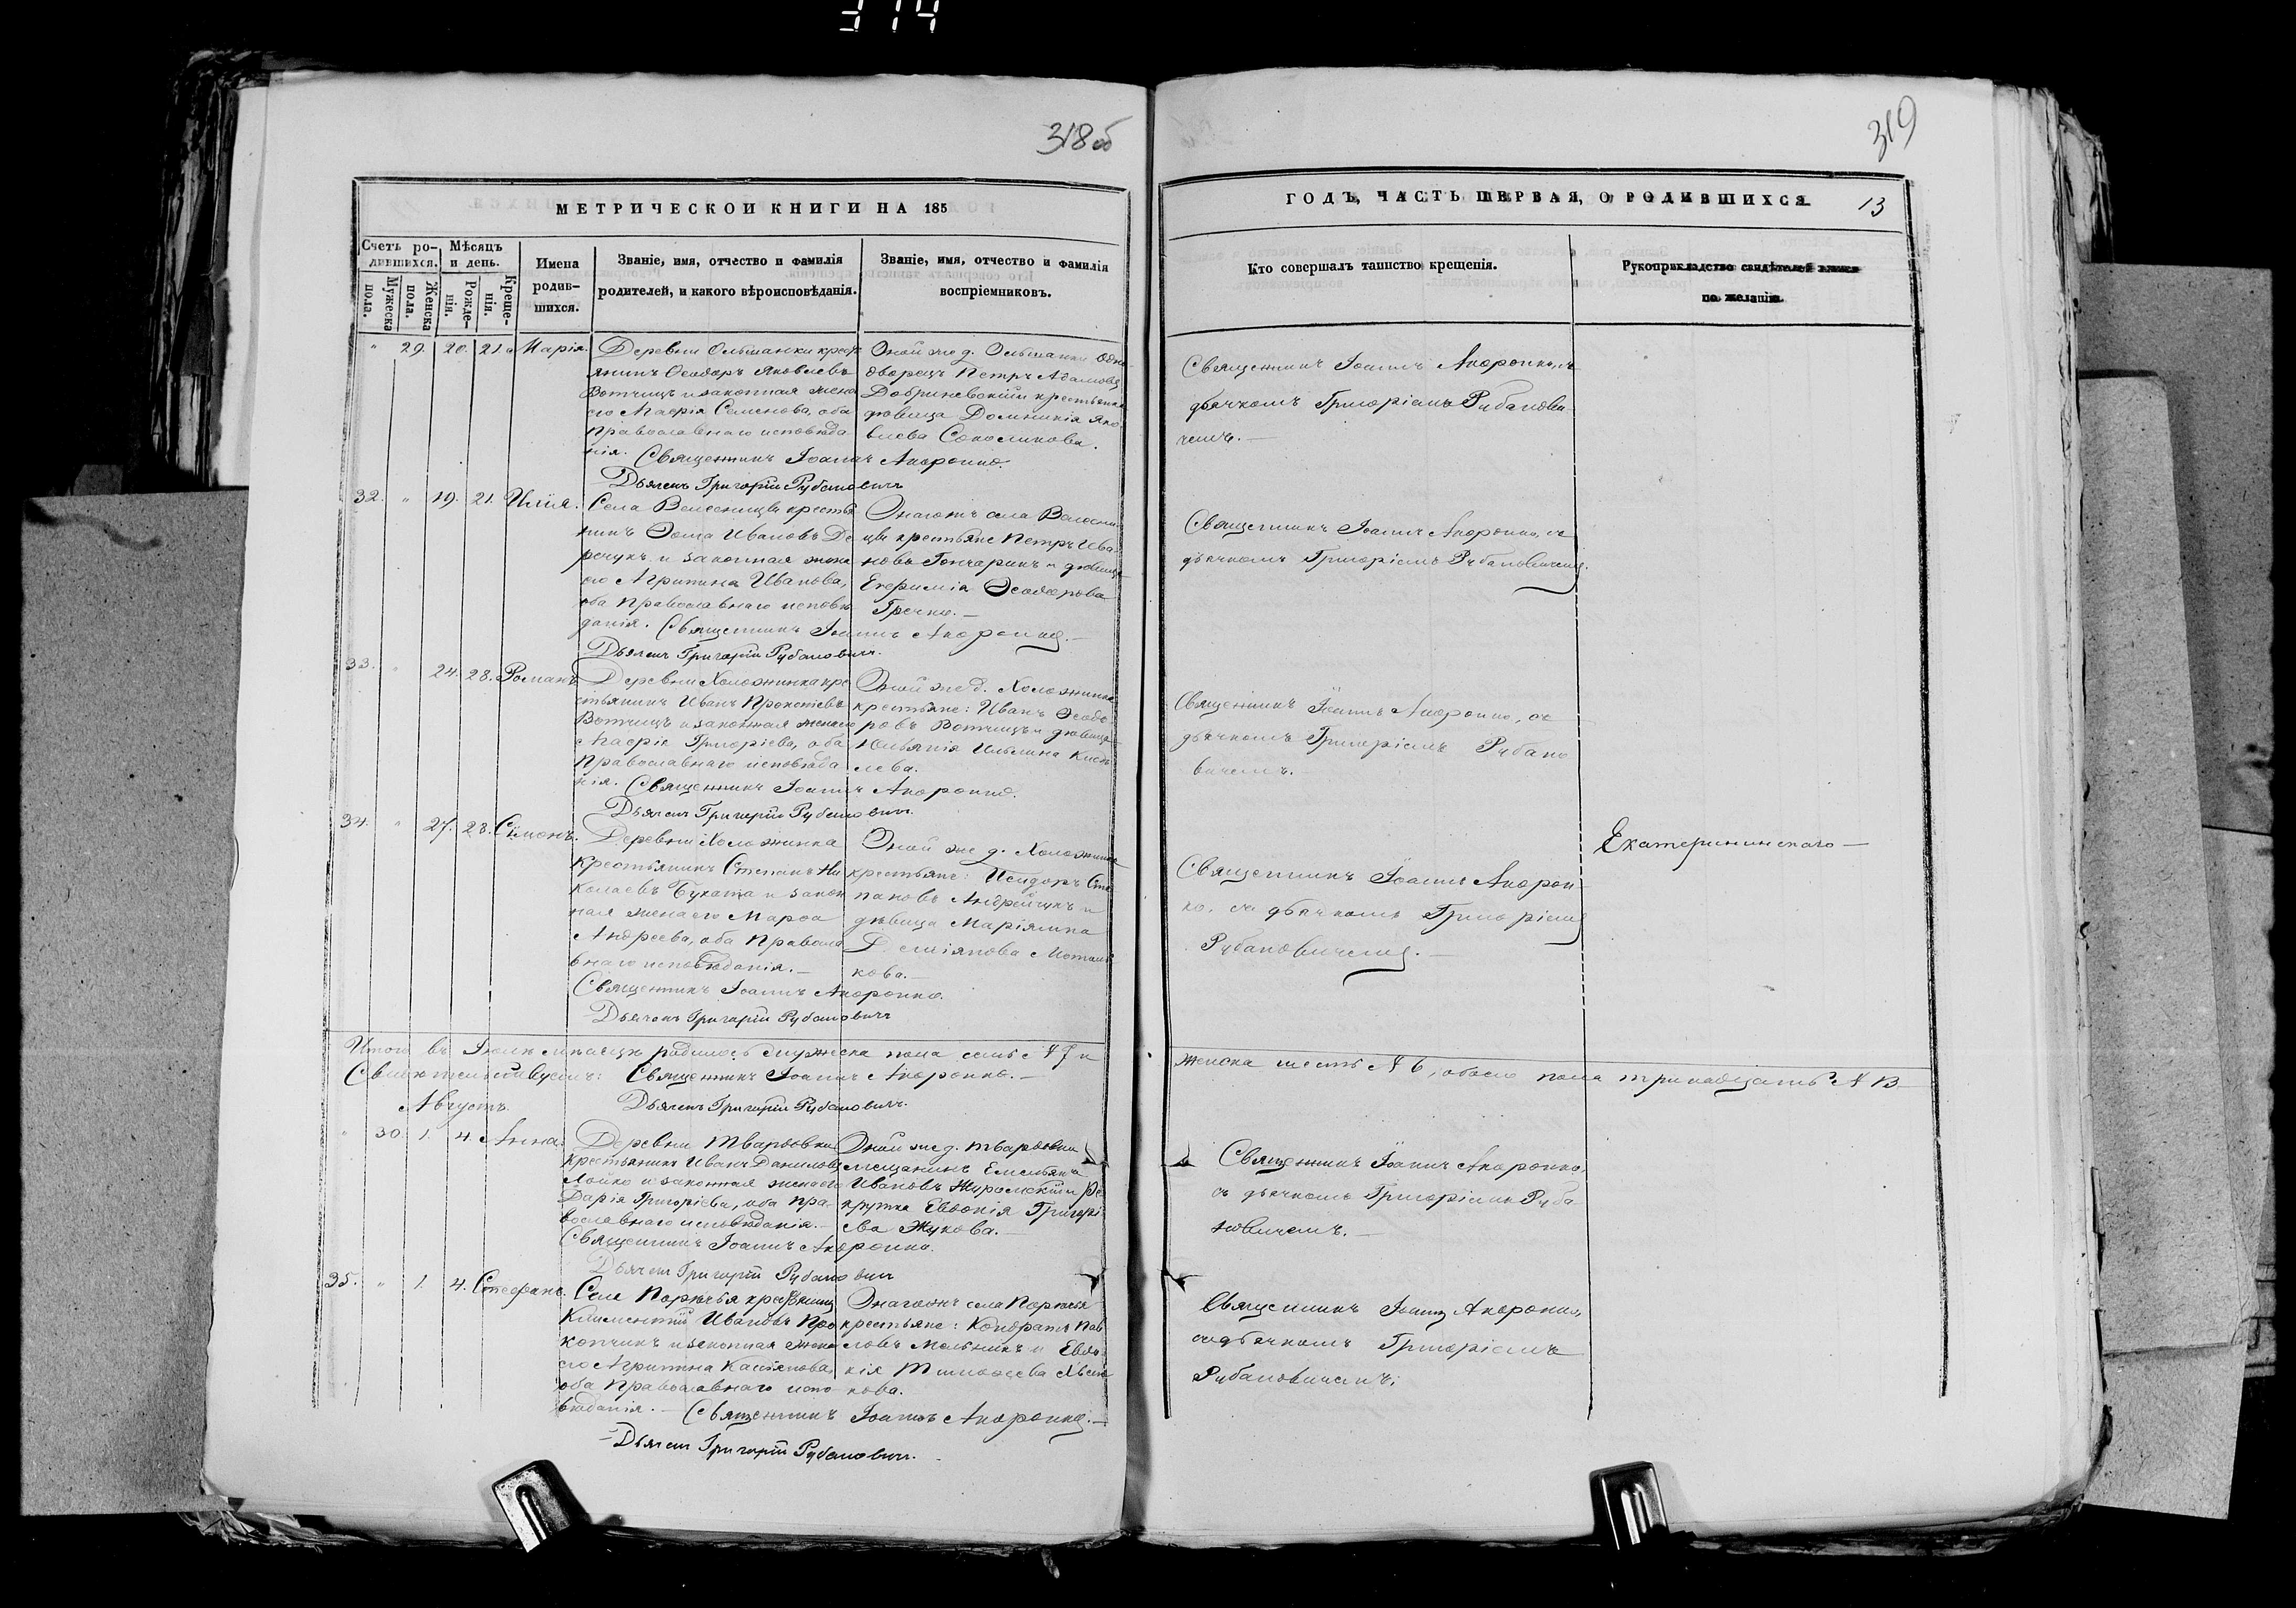 314
318об
МЕТРИЧЕСКОЙ КНИГИ НА 185
Счетъ ро-
дившихся.
Мѣсяцъ
и день.
Имена
родив-
шихся.
Званіе, имя, отчество и фамилія
родителей, и какого вѣроисповѣданія.
Званіе, имя, отчество и фамилія
воспріемниковъ.
Мужеска
пола.
Женска
пола.
Рожде-
нія.
Креще-
нія.
" 29. 20. 21. Марія.
Деревни Ольшанки крест
янинъ Ѳеодоръ Яковлевъ
Вотчицъ и законная жена
его Марія Семенова, оба
православнаго исповѣда
нія. Священникъ Іоаннъ
Дьячекъ Григорій Рубановичъ
Оной же д. Ольшанки одно
дворецъ Петръ Адамовъ
Добриневскій и крестьянка
дѣвица Домникія Яко
влева
32. " 19. 21. Илія.
Села Велесницы крестья
нинъ Ѳома Ивановъ Де
речукъ и законная жена
его Агрипина Иванова,
оба православнаго исповѣ
данія. Священникъ Іоаннъ
Дьячекъ Григорій Рубановичъ.
Онагожъ села Велесни
цы крестьяне Петръ Ива
новъ Гончарикъ и дѣвица
Евфимія Ѳеодорова
Гречко.
33. " 24. 28. Романъ
Деревни Холожинка кре
стьянинъ Иванъ Прокопіевъ
Вотчицъ и законная жена его
Марія Григоріева, оба
православнаго исповѣда
нія. Священникъ Іоаннъ
Дьячекъ Григорій Рубановичъ.
Оной же д. Холожинка
крестьяне: Иванъ Ѳеодо
ровъ Вотчицъ и дѣвица
Юльянія Ильина
34. " 27. 28. Симонъ.
Деревни Холожинка
крестьянинъ Степанъ Ни
колаевъ Буката и закон
ная жена его Марѳа
Андреева, оба православ
внаго исповѣданія.
Священникъ Іоаннъ
Дьячекъ Григорій Рубановичъ
Оной же д. Холожинка
крестьяне: Исидоръ Сте
пановъ Андрейчукъ и
дѣвица Маріянна
кова.
Итого въ Іюлѣ мѣсяцѣ родилось мужеска пола семь № 7 и
Свидѣтельствуемъ: Священникъ Іоаннъ
Дьячекъ Григорій Рубановичъ.
Августъ
" 30. 1. 4. Анна.
Деревни Твардовки
крестьянинъ Иванъ Даниловъ
Лойко и законная жена его
Дарія Григоріева, оба пра-
вославнаго исповѣданія.
Священникъ Іоаннъ
Дьячекъ Григорій Рубановичъ
Оной же д. Твардовки
мещанинъ Емельянъ
Ивановъ Журомскій и ре
крутка Евдокія Григорі
ева Жукова.
35. " 1. 4. Стефанъ.
Села Порѣчья крестьянинъ
Климентій Ивановъ Про
копчикъ и законная жена
его Агрипина Касіянова,
оба православнаго испо
вѣданія. Священникъ Іоаннъ
Дьячекъ Григорій Рубановичъ.
Онагожъ села Порѣчья
крестьяне: Кондратъ Пав
ловъ Мельникъ и Евдо
кія Тимоѳеева
кова.
319
ГОДЪ, ЧАСТЬ ПЕРВАЯ, О РОДИВШИХСЯ
13
Кто совершалъ таинство крещенія.
Рукоприкладство свидѣтелей записи
по желанію.
Священникъ Іоаннъ
дьячкомъ Григоріемъ Рубанови-
чемъ.
Священникъ Іоаннъ
дьячкомъ Григоріемъ Рубановичемъ.
Священникъ Іоаннъ
дьячкомъ Григоріемъ Рубано
вичемъ.
Екатерининскаго
Священникъ Іоаннъ
съ дьячкомъ Григоріемъ
Рубановичемъ.
женска шесть № 6, обоего пола тринадцать № 13
Священникъ Іоаннъ
съ дьячкомъ Григоріемъ Руба
новичемъ.
Священникъ Іоаннъ
съ дьячкомъ Григоріемъ
Рубановичемъ.